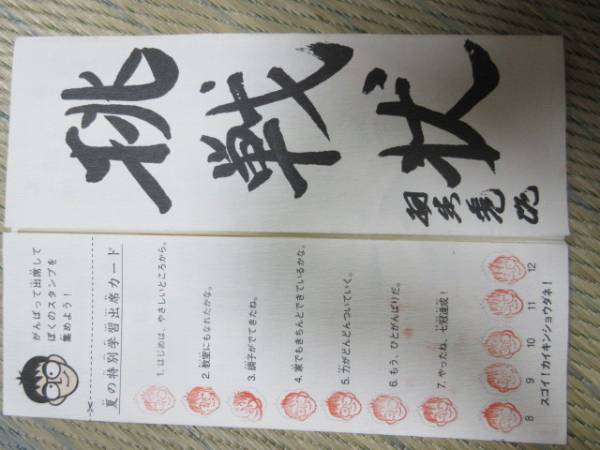 挑戦状
羽生善治
がんばって出席して
ぼくのスタンプを
集めよう!
夏の特別学習出席カード
1. はじめは、やさしいところから。
2. 教室にもなれたかな。
3. 調子がでてきたね。
4. 家でもきちんとできているかな。
5. 力がどんどんついていく。
6. もう、ひとがんばりだ。
7. やったね、七冠達成!
8
9
10
11
12
スゴイ!カイキンショウダネ!